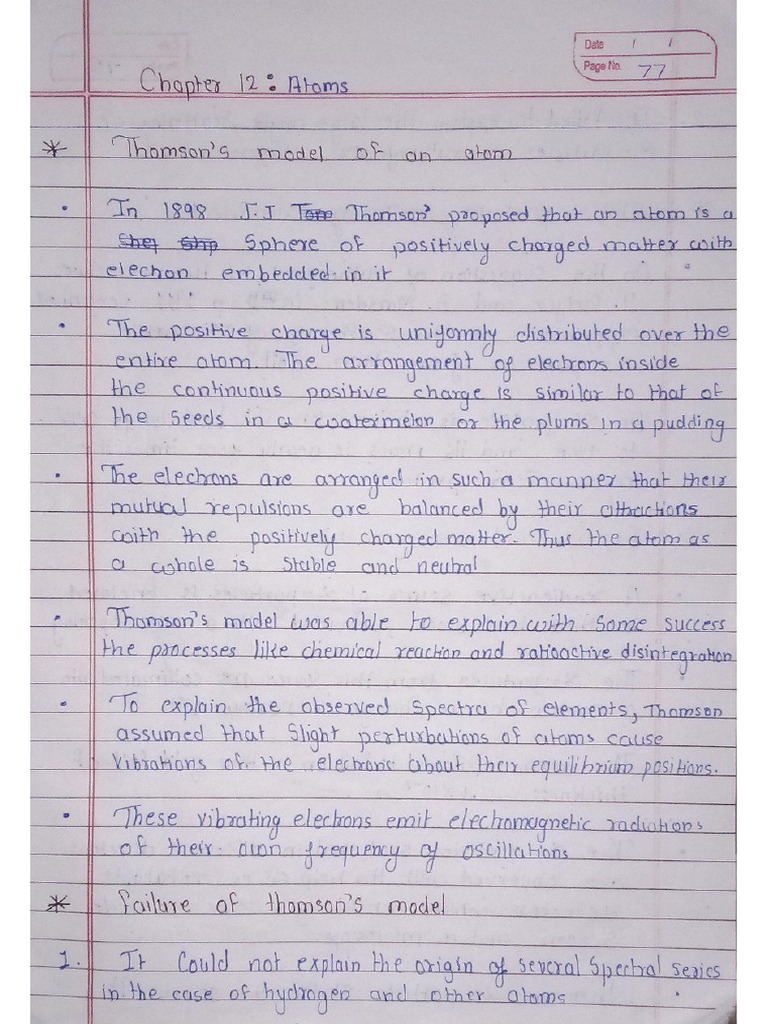 Date / /
Page No. 77
Chapter 12: Atoms
* Thomson's model of an atom
• In 1898 J.J Thomson' proposed that an atom is a
Sphere of positively charged matter with
elechon embedded in it
• The positive charge is uniformly distributed over the
entire atom. The arrangement of electrons inside
the continuous positive charge is similar to that of
the seeds in a watermelon or the plums in a pudding
• The electrons are arranged in such a manner that their
mutual repulsions are balanced by their attractions
with the positively charged matter. Thus the atom as
a whole is stable and neutral
• Thomson's model was able to explain with some success
the processes like chemical reaction and ratioactive disintegration
• To explain the observed spectra of elements, Thomson
assumed that slight perturbations of atoms cause
vibrations of the electrons about their equilibrium positions.
• These vibrating electrons emit electromagnetic radiations
of their own frequency of oscillations
* Failure of thomson's model
1. It could not explain the origin of several spectral series
in the case of hydrogen and other atoms